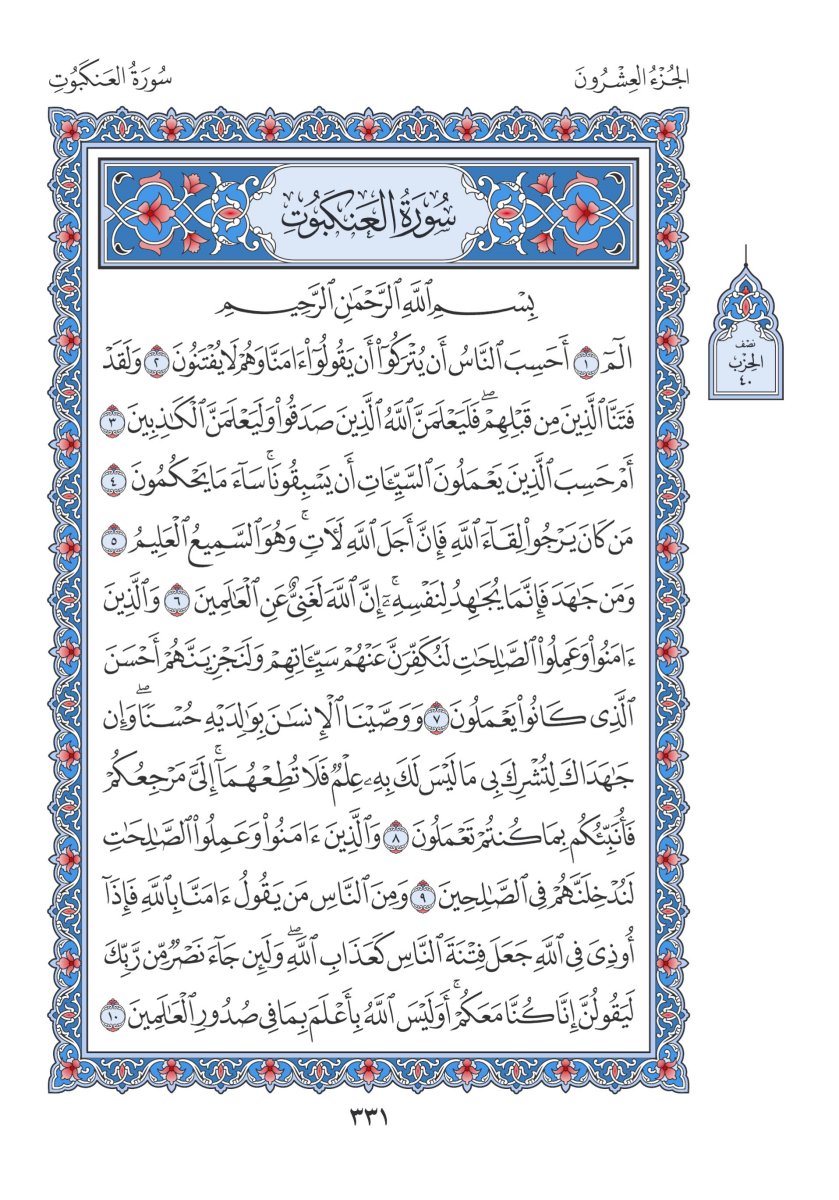 الجُزْءُ العِشْرُونَ
سُورَةُ العَنكَبُوتِ
سُورَةُ العَنكَبُوتِ
بِسْمِ ٱللَّهِ ٱلرَّحْمَٰنِ ٱلرَّحِيمِ
الٓمٓ ١ أَحَسِبَ ٱلنَّاسُ أَن يُتْرَكُوٓا۟ أَن يَقُولُوٓا۟ ءَامَنَّا وَهُمْ لَا يُفْتَنُونَ ٢ وَلَقَدْ
فَتَنَّا ٱلَّذِينَ مِن قَبْلِهِمْ ۖ فَلَيَعْلَمَنَّ ٱللَّهُ ٱلَّذِينَ صَدَقُوا۟ وَلَيَعْلَمَنَّ ٱلْكَٰذِبِينَ ٣
أَمْ حَسِبَ ٱلَّذِينَ يَعْمَلُونَ ٱلسَّيِّـَٔاتِ أَن يَسْبِقُونَا ۚ سَآءَ مَا يَحْكُمُونَ ٤
مَن كَانَ يَرْجُوا۟ لِقَآءَ ٱللَّهِ فَإِنَّ أَجَلَ ٱللَّهِ لَـَٔاتٍ ۚ وَهُوَ ٱلسَّمِيعُ ٱلْعَلِيمُ ٥
وَمَن جَٰهَدَ فَإِنَّمَا يُجَٰهِدُ لِنَفْسِهِۦٓ ۚ إِنَّ ٱللَّهَ لَغَنِىٌّ عَنِ ٱلْعَٰلَمِينَ ٦ وَٱلَّذِينَ
ءَامَنُوا۟ وَعَمِلُوا۟ ٱلصَّٰلِحَٰتِ لَنُكَفِّرَنَّ عَنْهُمْ سَيِّـَٔاتِهِمْ وَلَنَجْزِيَنَّهُمْ أَحْسَنَ
ٱلَّذِى كَانُوا۟ يَعْمَلُونَ ٧ وَوَصَّيْنَا ٱلْإِنسَٰنَ بِوَٰلِدَيْهِ حُسْنًا ۖ وَإِن
جَٰهَدَاكَ لِتُشْرِكَ بِى مَا لَيْسَ لَكَ بِهِۦ عِلْمٌ فَلَا تُطِعْهُمَآ ۚ إِلَىَّ مَرْجِعُكُمْ
فَأُنَبِّئُكُم بِمَا كُنتُمْ تَعْمَلُونَ ٨ وَٱلَّذِينَ ءَامَنُوا۟ وَعَمِلُوا۟ ٱلصَّٰلِحَٰتِ
لَنُدْخِلَنَّهُمْ فِى ٱلصَّٰلِحِينَ ٩ وَمِنَ ٱلنَّاسِ مَن يَقُولُ ءَامَنَّا بِٱللَّهِ فَإِذَآ
أُوذِىَ فِى ٱللَّهِ جَعَلَ فِتْنَةَ ٱلنَّاسِ كَعَذَابِ ٱللَّهِ ۖ وَلَئِن جَآءَ نَصْرٌ مِّن رَّبِّكَ
لَيَقُولُنَّ إِنَّا كُنَّا مَعَكُمْ ۚ أَوَلَيْسَ ٱللَّهُ بِأَعْلَمَ بِمَا فِى صُدُورِ ٱلْعَٰلَمِينَ ١٠
نصْف
الحِزْب
٤٠
٣٣١